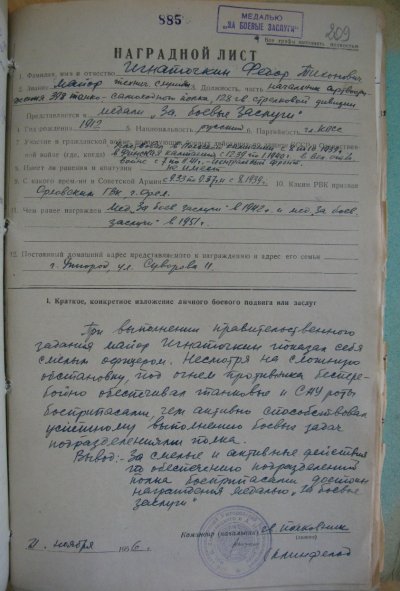 885
МЕДАЛЬЮ
„ЗА БОЕВЫЕ ЗАСЛУГИ“
209
Все графы заполнять полностью
НАГРАДНОЙ ЛИСТ
1. Фамилия, имя и отчество Игнаточкин Федор Тихонович
2. Звание майор технич. службы 3. Должность, часть начальник артвоору-
жения 378 танко-самоходного полка, 128 гв стрелковой дивизии
Представляется к медали „За боевые заслуги“
4. Год рождения 1912 5. Национальность русский 6. Партийность чл. КПСС
7. Участие в гражданской войне,
войне (где, когда) в финской кампании с 12.39 по 1.1940 в Вел. отеч.
войне с 7 по 8.41г.
8. Имеет ли ранения и контузии не имеет
9. С какого времени в Советской Армии с 9.33 по 9.37 и с 8.1939. 10. Каким РВК призван
Орловским ГВК г. Орел.
11. Чем ранее награжден мед. „За боев. заслуги“ в 1942г. и мед. „За боев.
заслуги“ в 1951г.
12. Постоянный домашний адрес представляемого к награждению и адрес его семьи
г. Ужгород ул. Суворова 11.
I. Краткое, конкретное изложение личного боевого подвига или заслуг
При выполнении правительственного
задания майор Игнаточкин показал себя
смелым офицером. Несмотря на сложную
обстановку, под огнем противника беспере-
бойно обеспечивал танковые и САУ роты
боеприпасами, чем активно способствовал
успешному выполнению боевых задач
подразделениями полка.
Вывод:- За смелые и активные действия
по обеспечению подразделений
полка боеприпасами достоин
награждения медалью „За боевые
заслуги“
Командир (начальник) гв. полковник
21 ноября 1956 г.